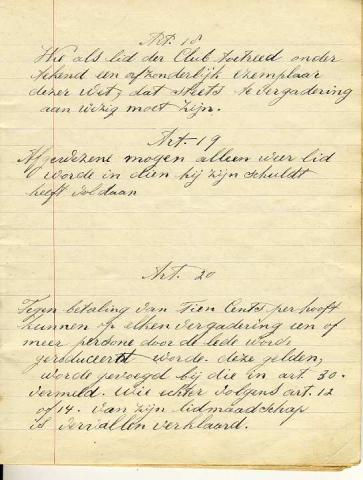 Art. 18
Wie als lid der Club toetreed onder
tekend een afzonderlijk exemplaar
dezer wet, dat steets te vergadering
aan wizig moet zijn.
Art. 19
Afgewezene mogen alleen weer lid
worde in dien hij zijn schuldt
heeft voldaan
Art. 20
Tegen betaling van Tien Cents per hooft
kunnen op elken vergadering een of
meer persone door de lede worde
geroduceert worde. deze gelden,
worde gevoegd bij die in art. 30.
vermeld. Wie echter volgens art. 12
of 14. van zijn lidmaadschap
is vervallen verklaard.